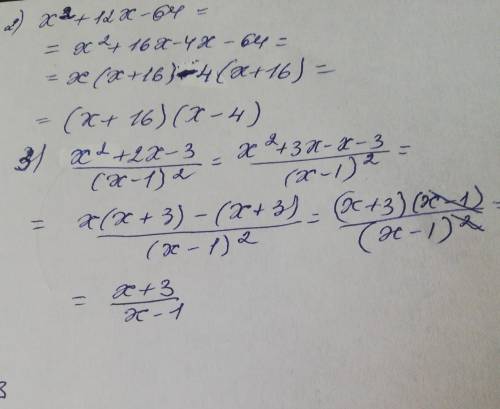 2) x²+12x-64=
= x²+16x-4x-64=
= x(x+16)-4(x+16)=
= (x+16)(x-4)
3) (x²+2x-3)/(x-1)² = (x²+3x-x-3)/(x-1)² =
= (x(x+3)-(x+3))/(x-1)² = ((x+3)(x-1))/(x-1)² =
= (x+3)/(x-1)